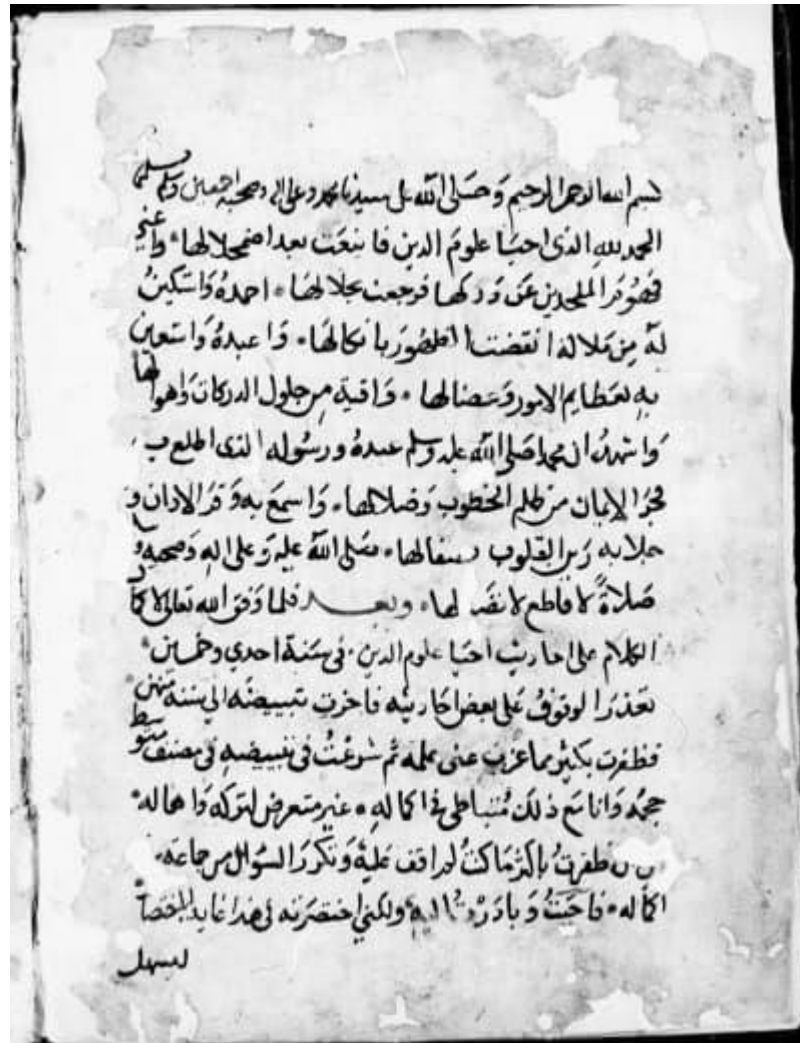 بسم الله الرحمن الرحيم وَصَلى اللّه على سيدنا محمد وعلى اله وصحبه اجمعين وسلم تسليما
الحمد للهِ الذى احيَا علومَ الدين فاينعَت بعد اضمحلالها واعيى
فهُومَ الملحدين عَن دَركها فرجعت بكلالهَا احمدهُ وَاستكينُ
لهُ مِن مَظالم انقضت الظهُورَ باثكالهَا وَاعبدهُ وَاستعين
بهِ لعَظايم الامور وَعضالها وَاقيةً مِن حلول الدركات وَاهوالها
وَاشهدُ ان محمدا صَلى اللّه عليه وسلم عبدهُ ورسُوله الذى اطلع به
فجرَ الايمان من ظلم الخطوب وَضلالهَا وَاسمعَ به وَقرَ الاذان و
جلا به رَين القلوب بصقالها صَلى اللّه عليه وَعلى اله وَصحبه و
صَلاةً لا قاطع لاتصَالها وبعد فلما وَفق الله تعالى لاكمال
الكلام على احاديث احيَا علوم الدين فى سَنة احدي وخمسين
تعذرَ الوقوفُ عَلى بعض احَاديثه فاخرت تبييضَه الي سَنة ستين
فظفرت بكثير مما عزب عنى علمه ثم شرعْتُ فى تبييضهِ فى مصنف متوسط
حجمُه وَانا مع ذلكَ مُتباطى فى اكماله غير متعرض لتركه وَاهماله
ظفرتُ باكثر مَا كنتُ لم اقف عَليهَ وَتكررَ السوَال من جماعَة
اكماله فاجَبتُ وَبادَرْتُ اليهِ ولكني اختصرته فى هذا غاية الاختصار
ليسهل